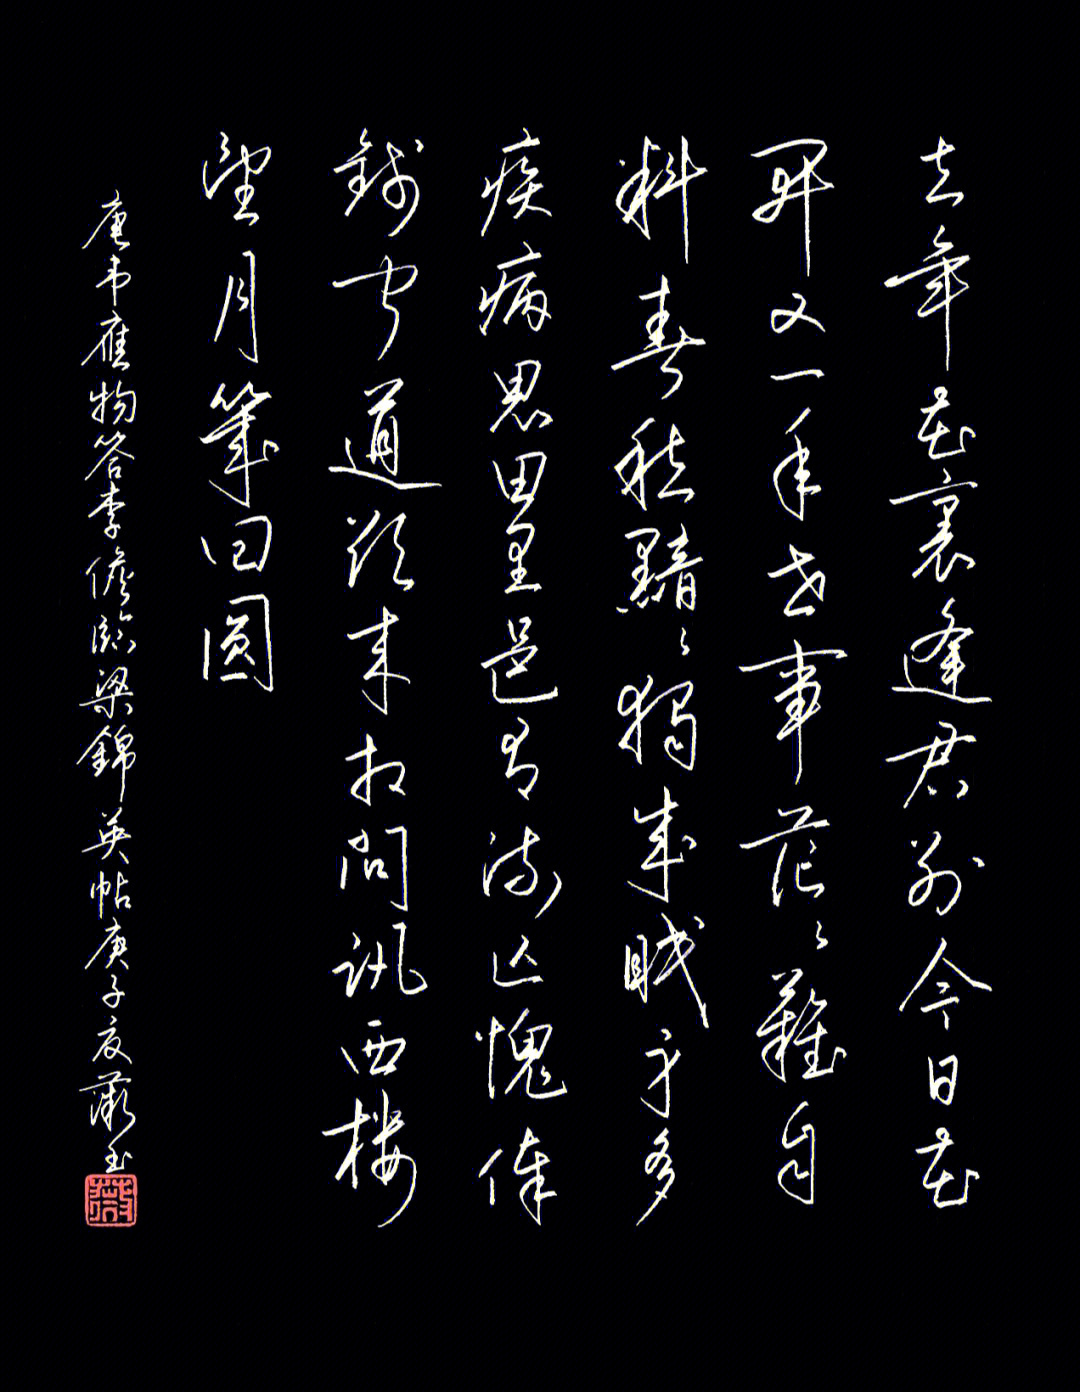 去年花裏逢君别今日花
開又一年世事茫〻難自
料春愁黯〻獨成眠身多
疾病思田里邑有流亡愧俸
錢聞道欲来相問訊西樓
望月幾回圓
唐韦應物答李儋臨梁錦英帖庚子夏薇玉
薇